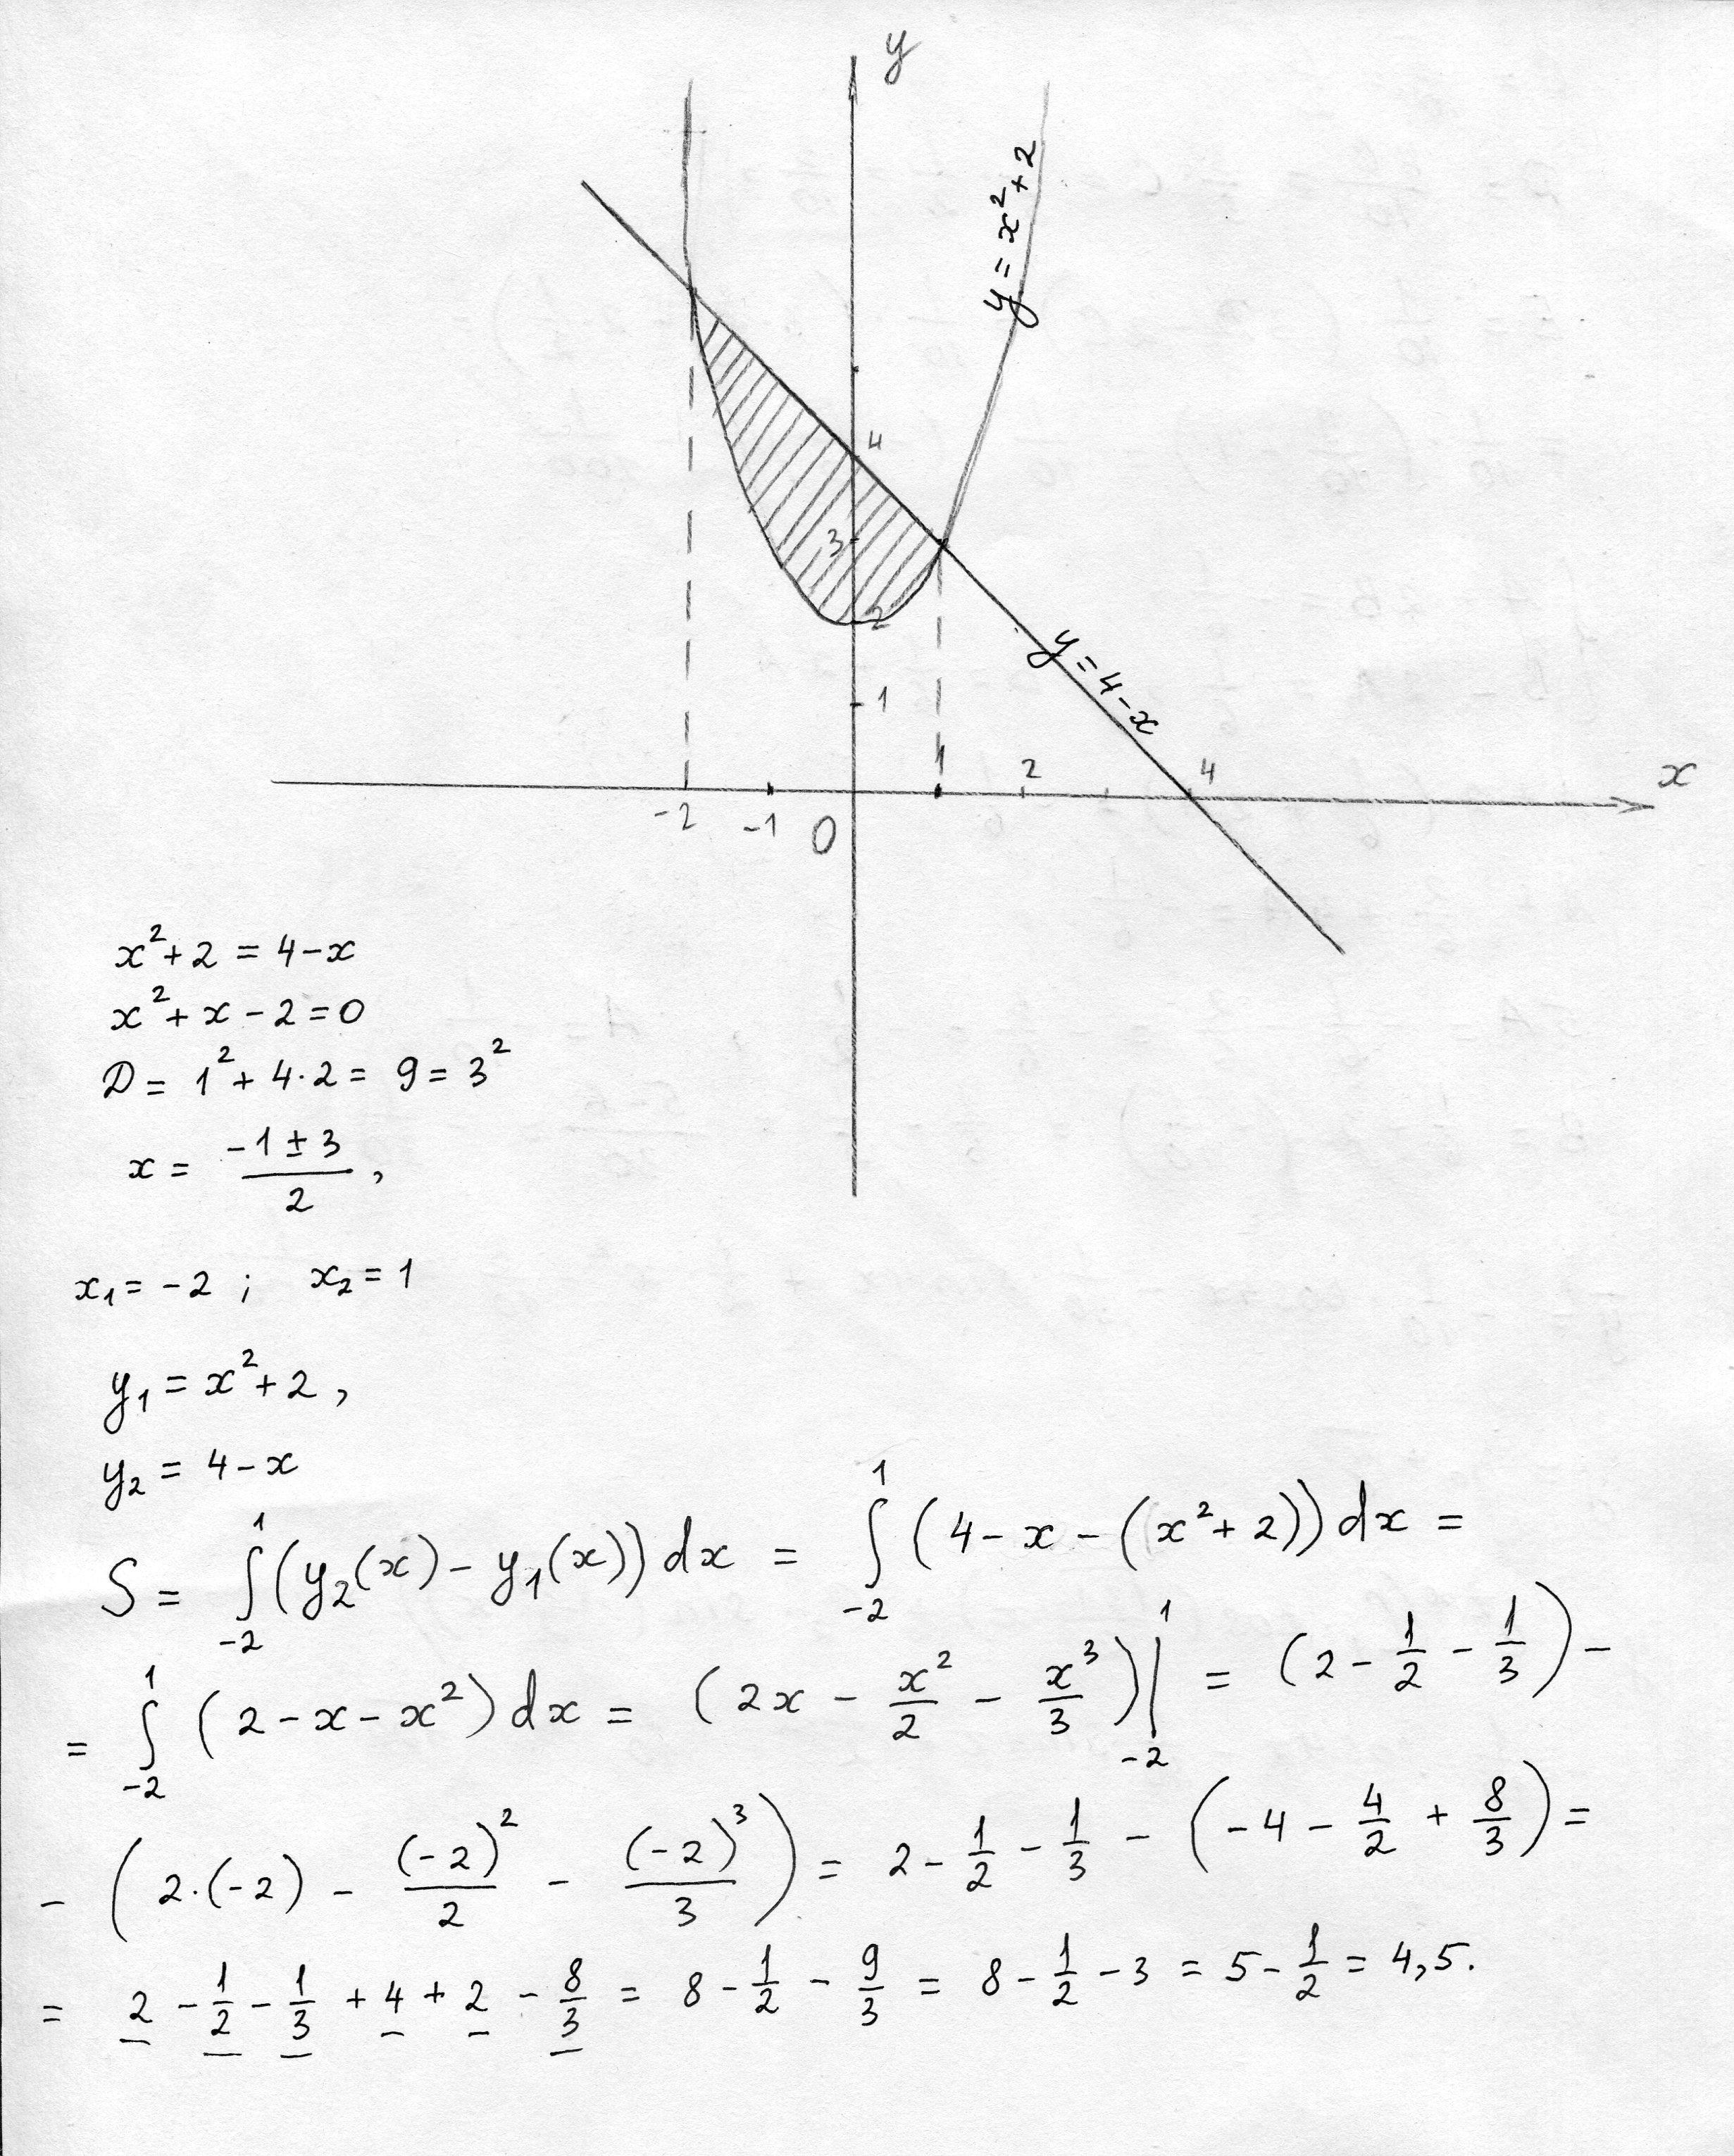 y
y = x²+2
4
3
2
y = 4-x
1
1 2 4 x
-2 -1 0
x²+2 = 4-x
x²+x-2=0
D = 1²+4·2 = 9 = 3²
x = (-1±3)/2 ,
x₁ = -2 ; x₂ = 1
y₁ = x²+2 ,
y₂ = 4-x
S = ∫₋₂¹ (y₂(x) - y₁(x)) dx = ∫₋₂¹ (4-x-(x²+2)) dx =
= ∫₋₂¹ (2-x-x²) dx = (2x - x²/2 - x³/3)|₋₂¹ = (2 - 1/2 - 1/3) -
- (2·(-2) - (-2)²/2 - (-2)³/3) = 2 - 1/2 - 1/3 - (-4 - 4/2 + 8/3) =
= 2 - 1/2 - 1/3 + 4 + 2 - 8/3 = 8 - 1/2 - 9/3 = 8 - 1/2 - 3 = 5 - 1/2 = 4,5.